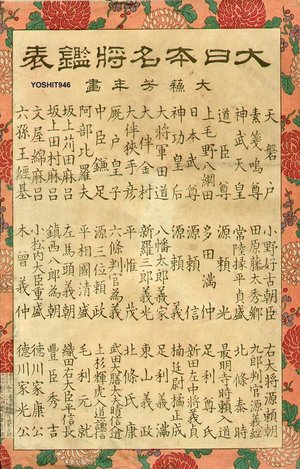 大日本名將鑑表
大蘓芳年畫
YOSHIT946
天磐戸
素盞嗚尊
神武天皇
道臣尊
上毛野八綱田
日本武尊
神功皇后
大將軍田道
大伴金村
大伴狭手彦
厩戸皇子
中臣鎌足
阿部比羅夫
坂上苅田麻呂
坂上田村麻呂
文屋綿麻呂
六孫王經基
小野好古朝臣
田原藤太秀郷
常陸掾平貞盛
源頼光
多田満仲
源頼信
源頼義
八幡太郎義家
新羅三郎義光
平惟茂
六條判官為義
源三位頼政
平相國清盛
左馬頭義朝
鎮西八郎為朝
小松内大臣重盛
木曽義仲
右大將源頼朝
九郎判官源義經
北條泰時
最明寺時頼入道
足利尊氏
新田左中將義貞
楠廷尉正成
東山義政
北條氏康
武田大膳大夫晴信入道
上杉輝虎入道謙信
毛利元就
織田右大臣平信長
豊臣秀吉
徳川家康公
徳川家光公